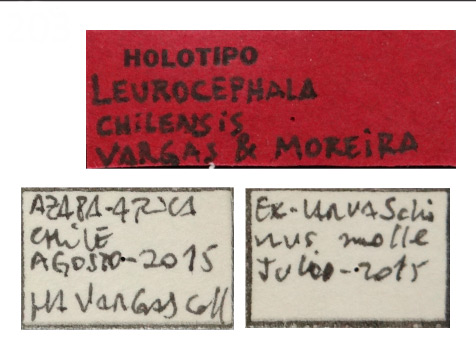 HOLOTIPO
LEUROCEPHALA
CHILENSIS
VARGAS & MOREIRA
AZAPA-ARICA
CHILE
AGOSTO-2015
HA VARGAS Coll
Ex-LARVA Schi
nus molle
Julio-2015